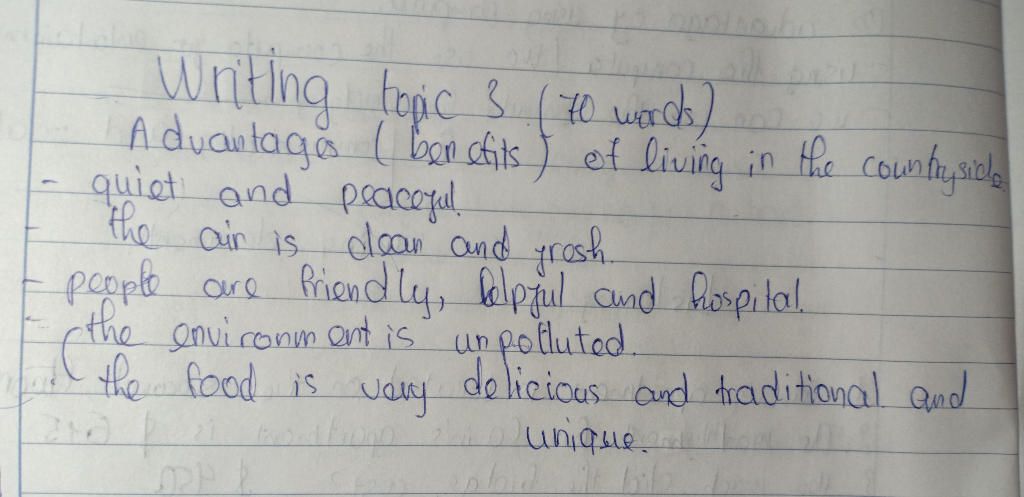 Writing topic 3 (70 words)
Advantages (benefits) of living in the countryside
- quiet and peaceful.
- the air is clean and fresh.
- people are friendly, helpful and hospital.
- the environment is unpolluted.
the food is very delicious and traditional and
unique.